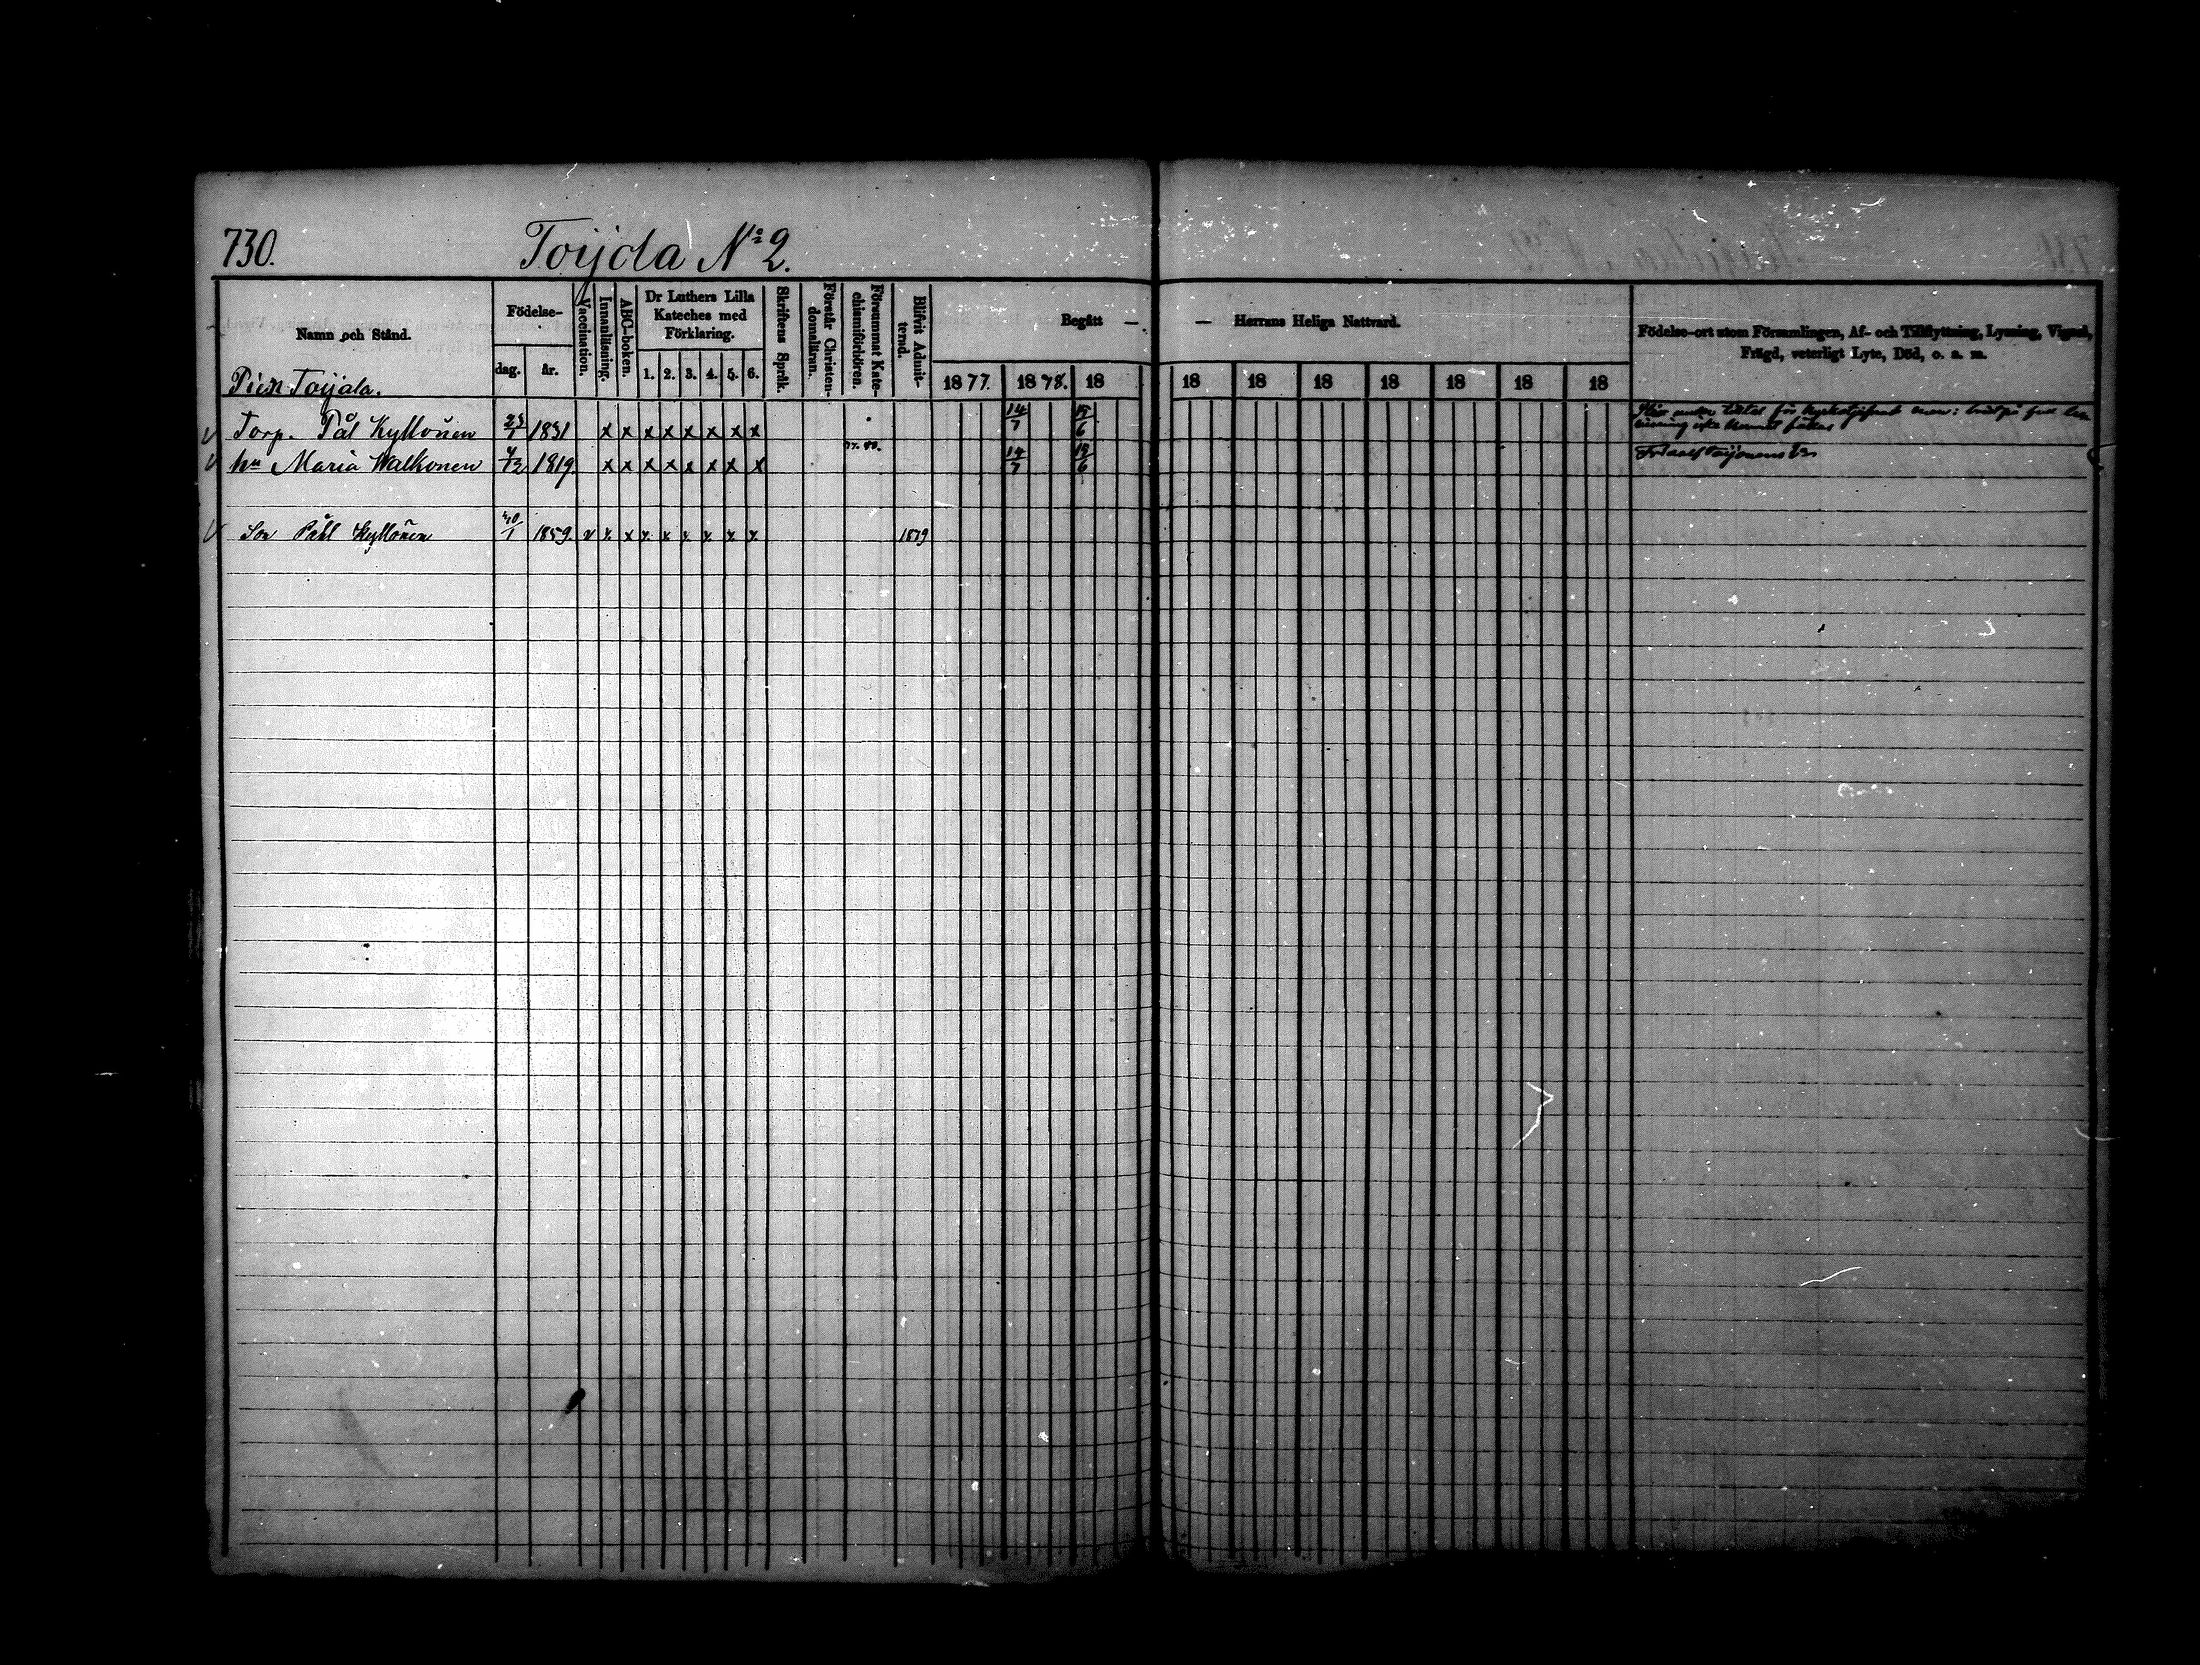 730. Toijola Nº 2.
Namn och Stånd.
Födelse-
dag. år.
Vaccination.
Innanläsning.
ABC-boken.
Dr Luthers Lilla
Kateches med
Förklaring.
1. 2. 3. 4. 5. 6.
Skriftens Språk.
Förstår Christen-
domsläran.
Försummat Kate-
chismiförhören.
Blifvit Admit-
terad.
Begått — — Herrans Heliga Nattvard.
1877. 1878. 18 18 18 18 18 18 18 18
Födelse-ort utom Församlingen, Af- och Tillflyttning, Lysning, Vigsel,
Frägd, veterligt Lyte, Död, o. s. m.
Toijala.
Torp. Pål Kyllönen 23/1 1831 x x x x x x x x 14/7 19/6
hu Maria Walkonen 4/12 1819 x x x x x x x x 77. 80. 14/7 19/6
Son Påhl Kyllönen 1859 v x x x x x x x x 1879